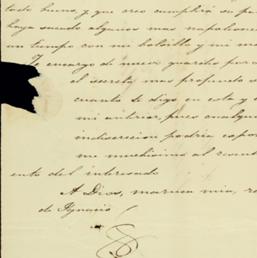 todo bueno, y que creo cumplirá su pa
haya sacado algunos mas napoleones
un tiempo con mi bolsillo y mi m
Te encargo de nuevo guardes per
el secreto mas profundo s
cuanto te digo en esta y e
mi anterior, pues cualqu
indiscrecion podria espon
me muchisimo al resent
iento del interesado
A Dios, maruca mia, re
de Ignacio